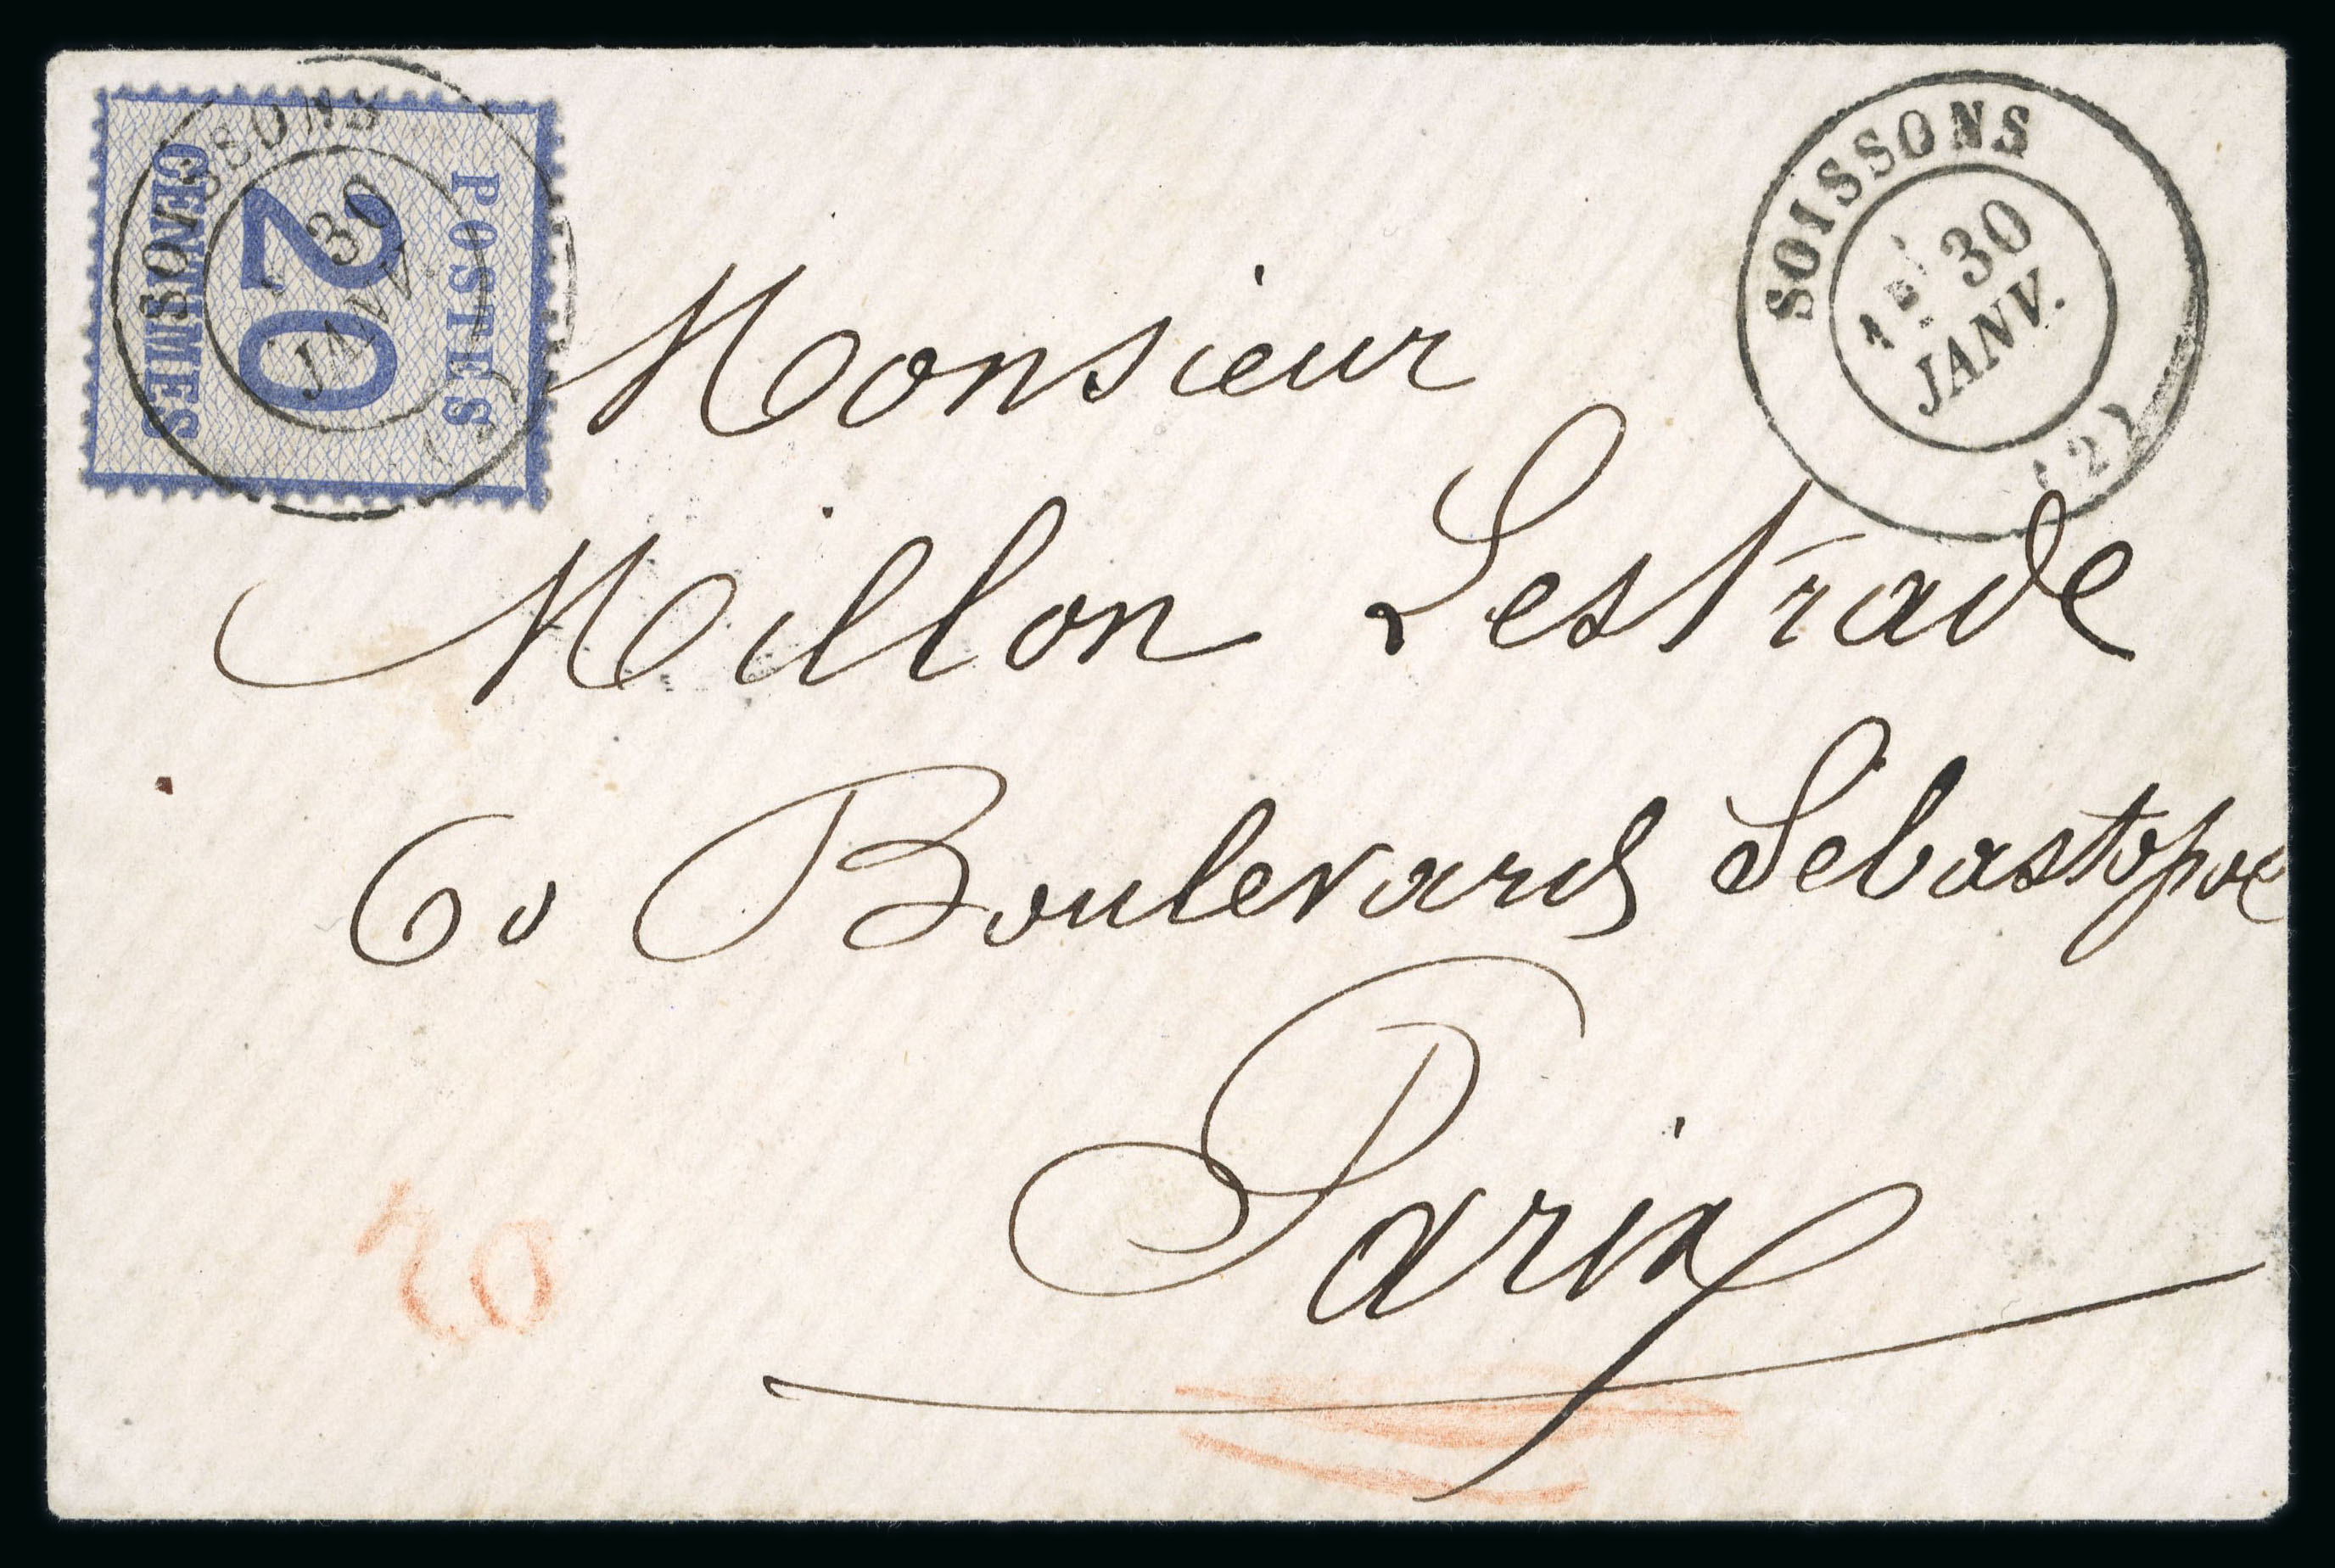 POSTES
20
CENTIMES
SOISSONS
30
JANV.
SOISSONS
1E 30
JANV.
(2)
Monsieur
Millon Lestrade
60 Boulevard Sebastopol
Paris
20